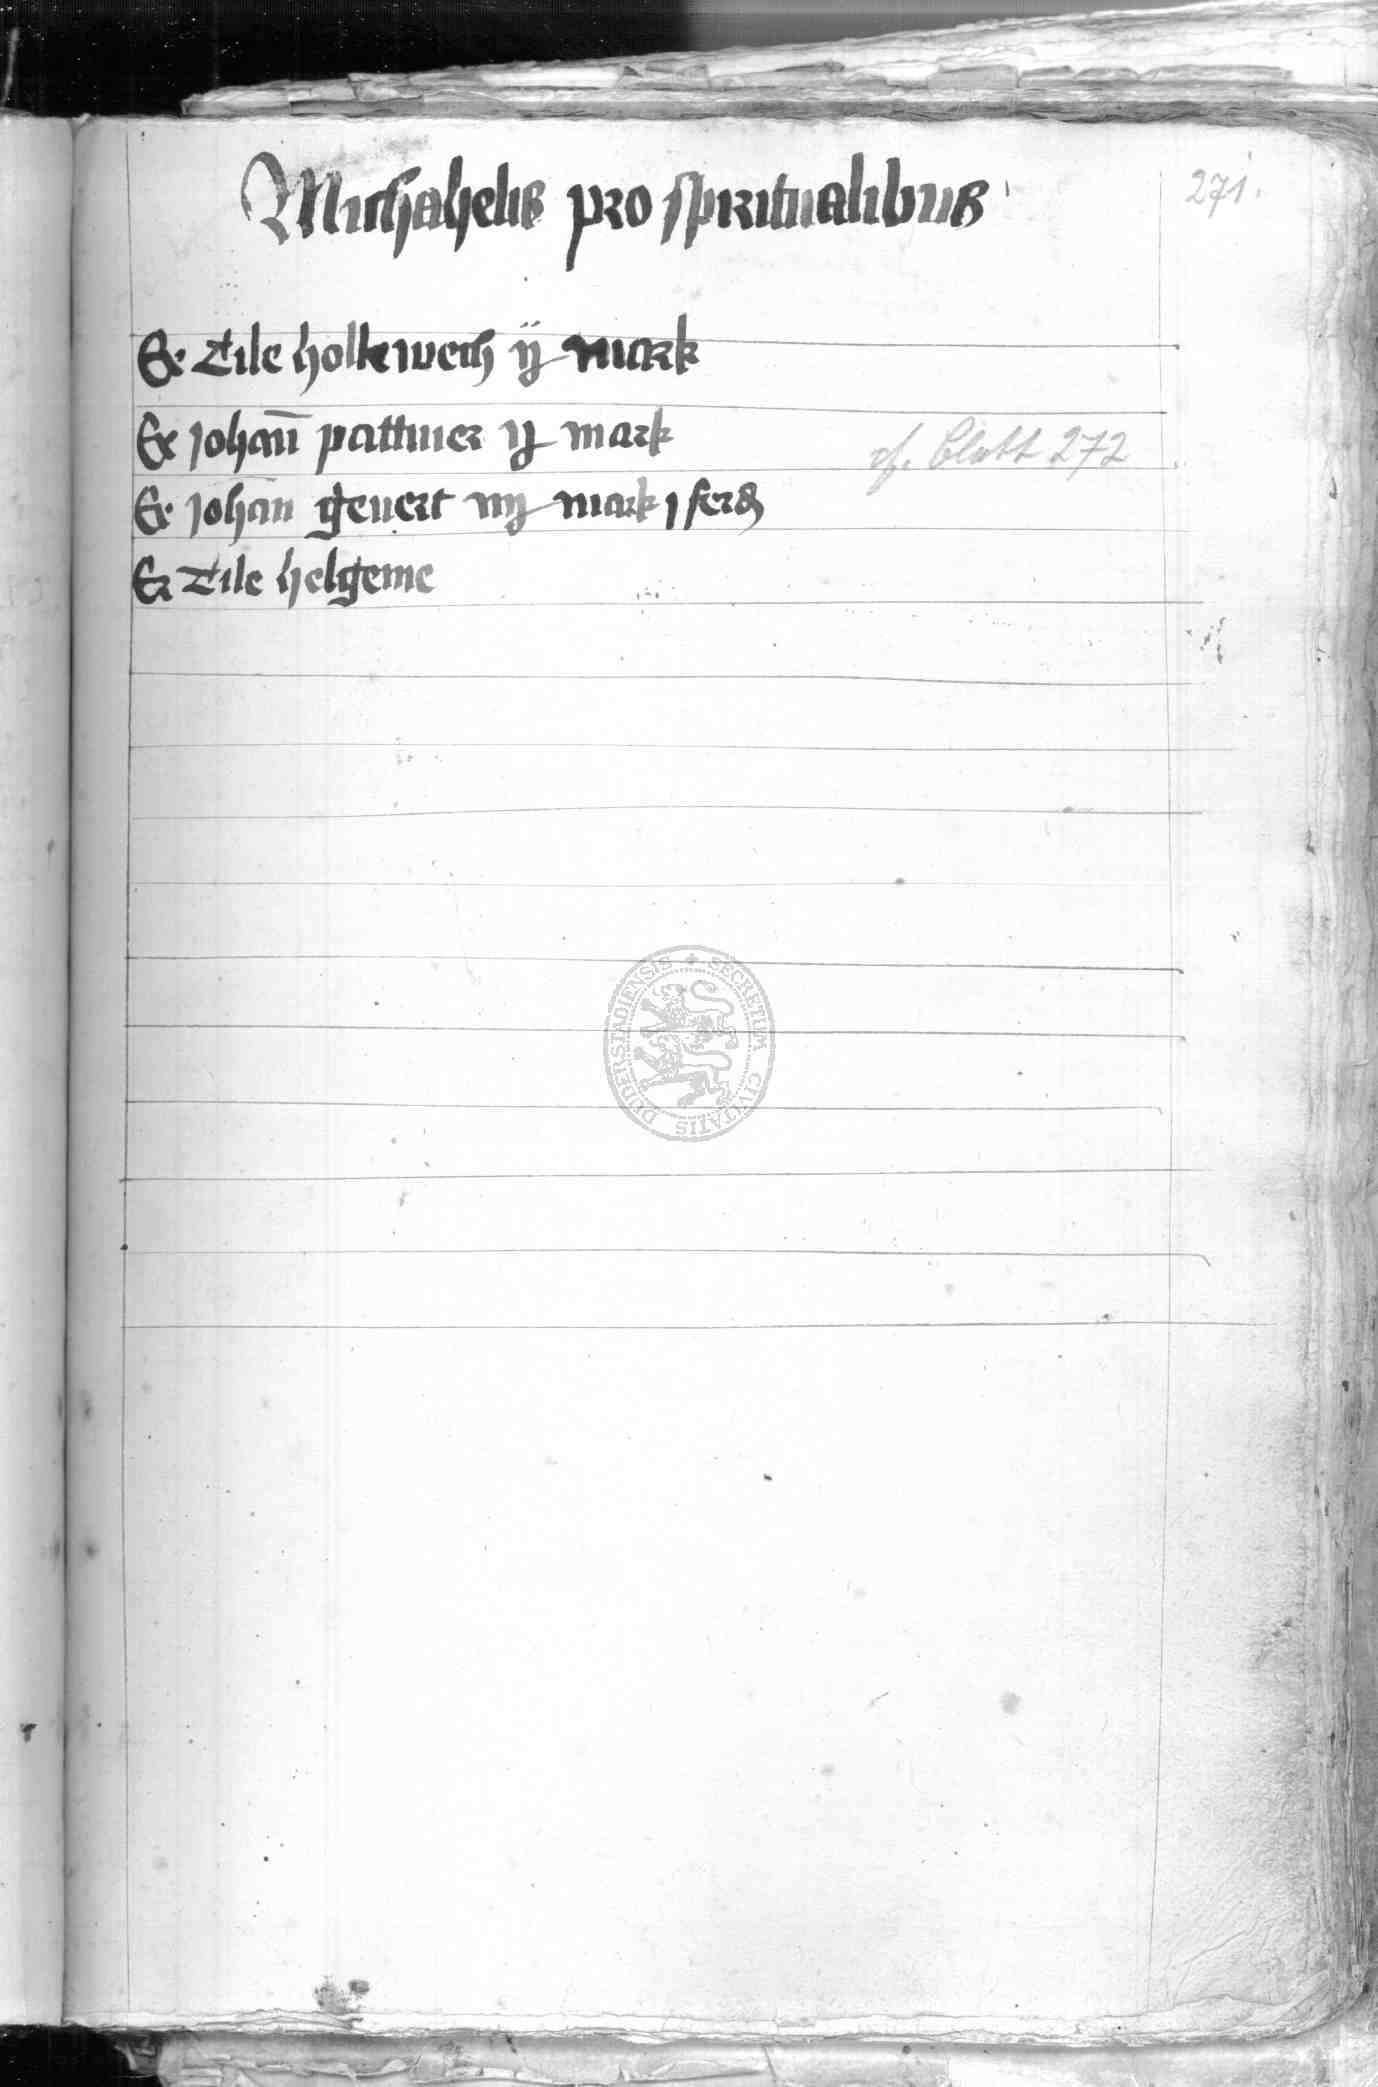 Michahelis pro spiritualibus
271.
Er Tile holkewech ij mark
Er johan̄ pattiner ij mark
cf. Blatt 272
Er johan̄ gevert iiij mark j ferd
Er Tile helgeme
SECRETUM CIVITATIS DUDERSTADIENSIS